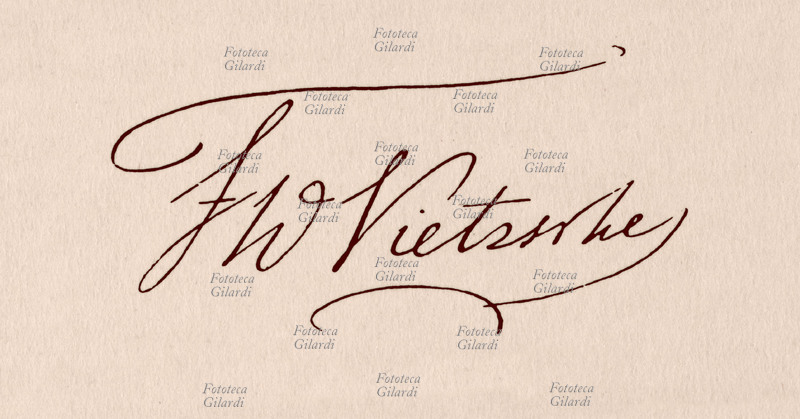 Fototeca
Gilardi
Fototeca
Gilardi
Fototeca
Gilardi
Fototeca
Gilardi
Fototeca
Gilardi
Fototeca
Gilardi
Fototeca
Gilardi
Fototeca
Gilardi
FW Nietzsche
Fototeca
Gilardi
Fototeca
Gilardi
Fototeca
Gilardi
Fototeca
Gilardi
Fototeca
Gilardi
Fototeca
Gilardi
Fototeca
Gilardi
Fototeca
Gilardi
Fototeca
Gilardi
Fototeca
Gilardi